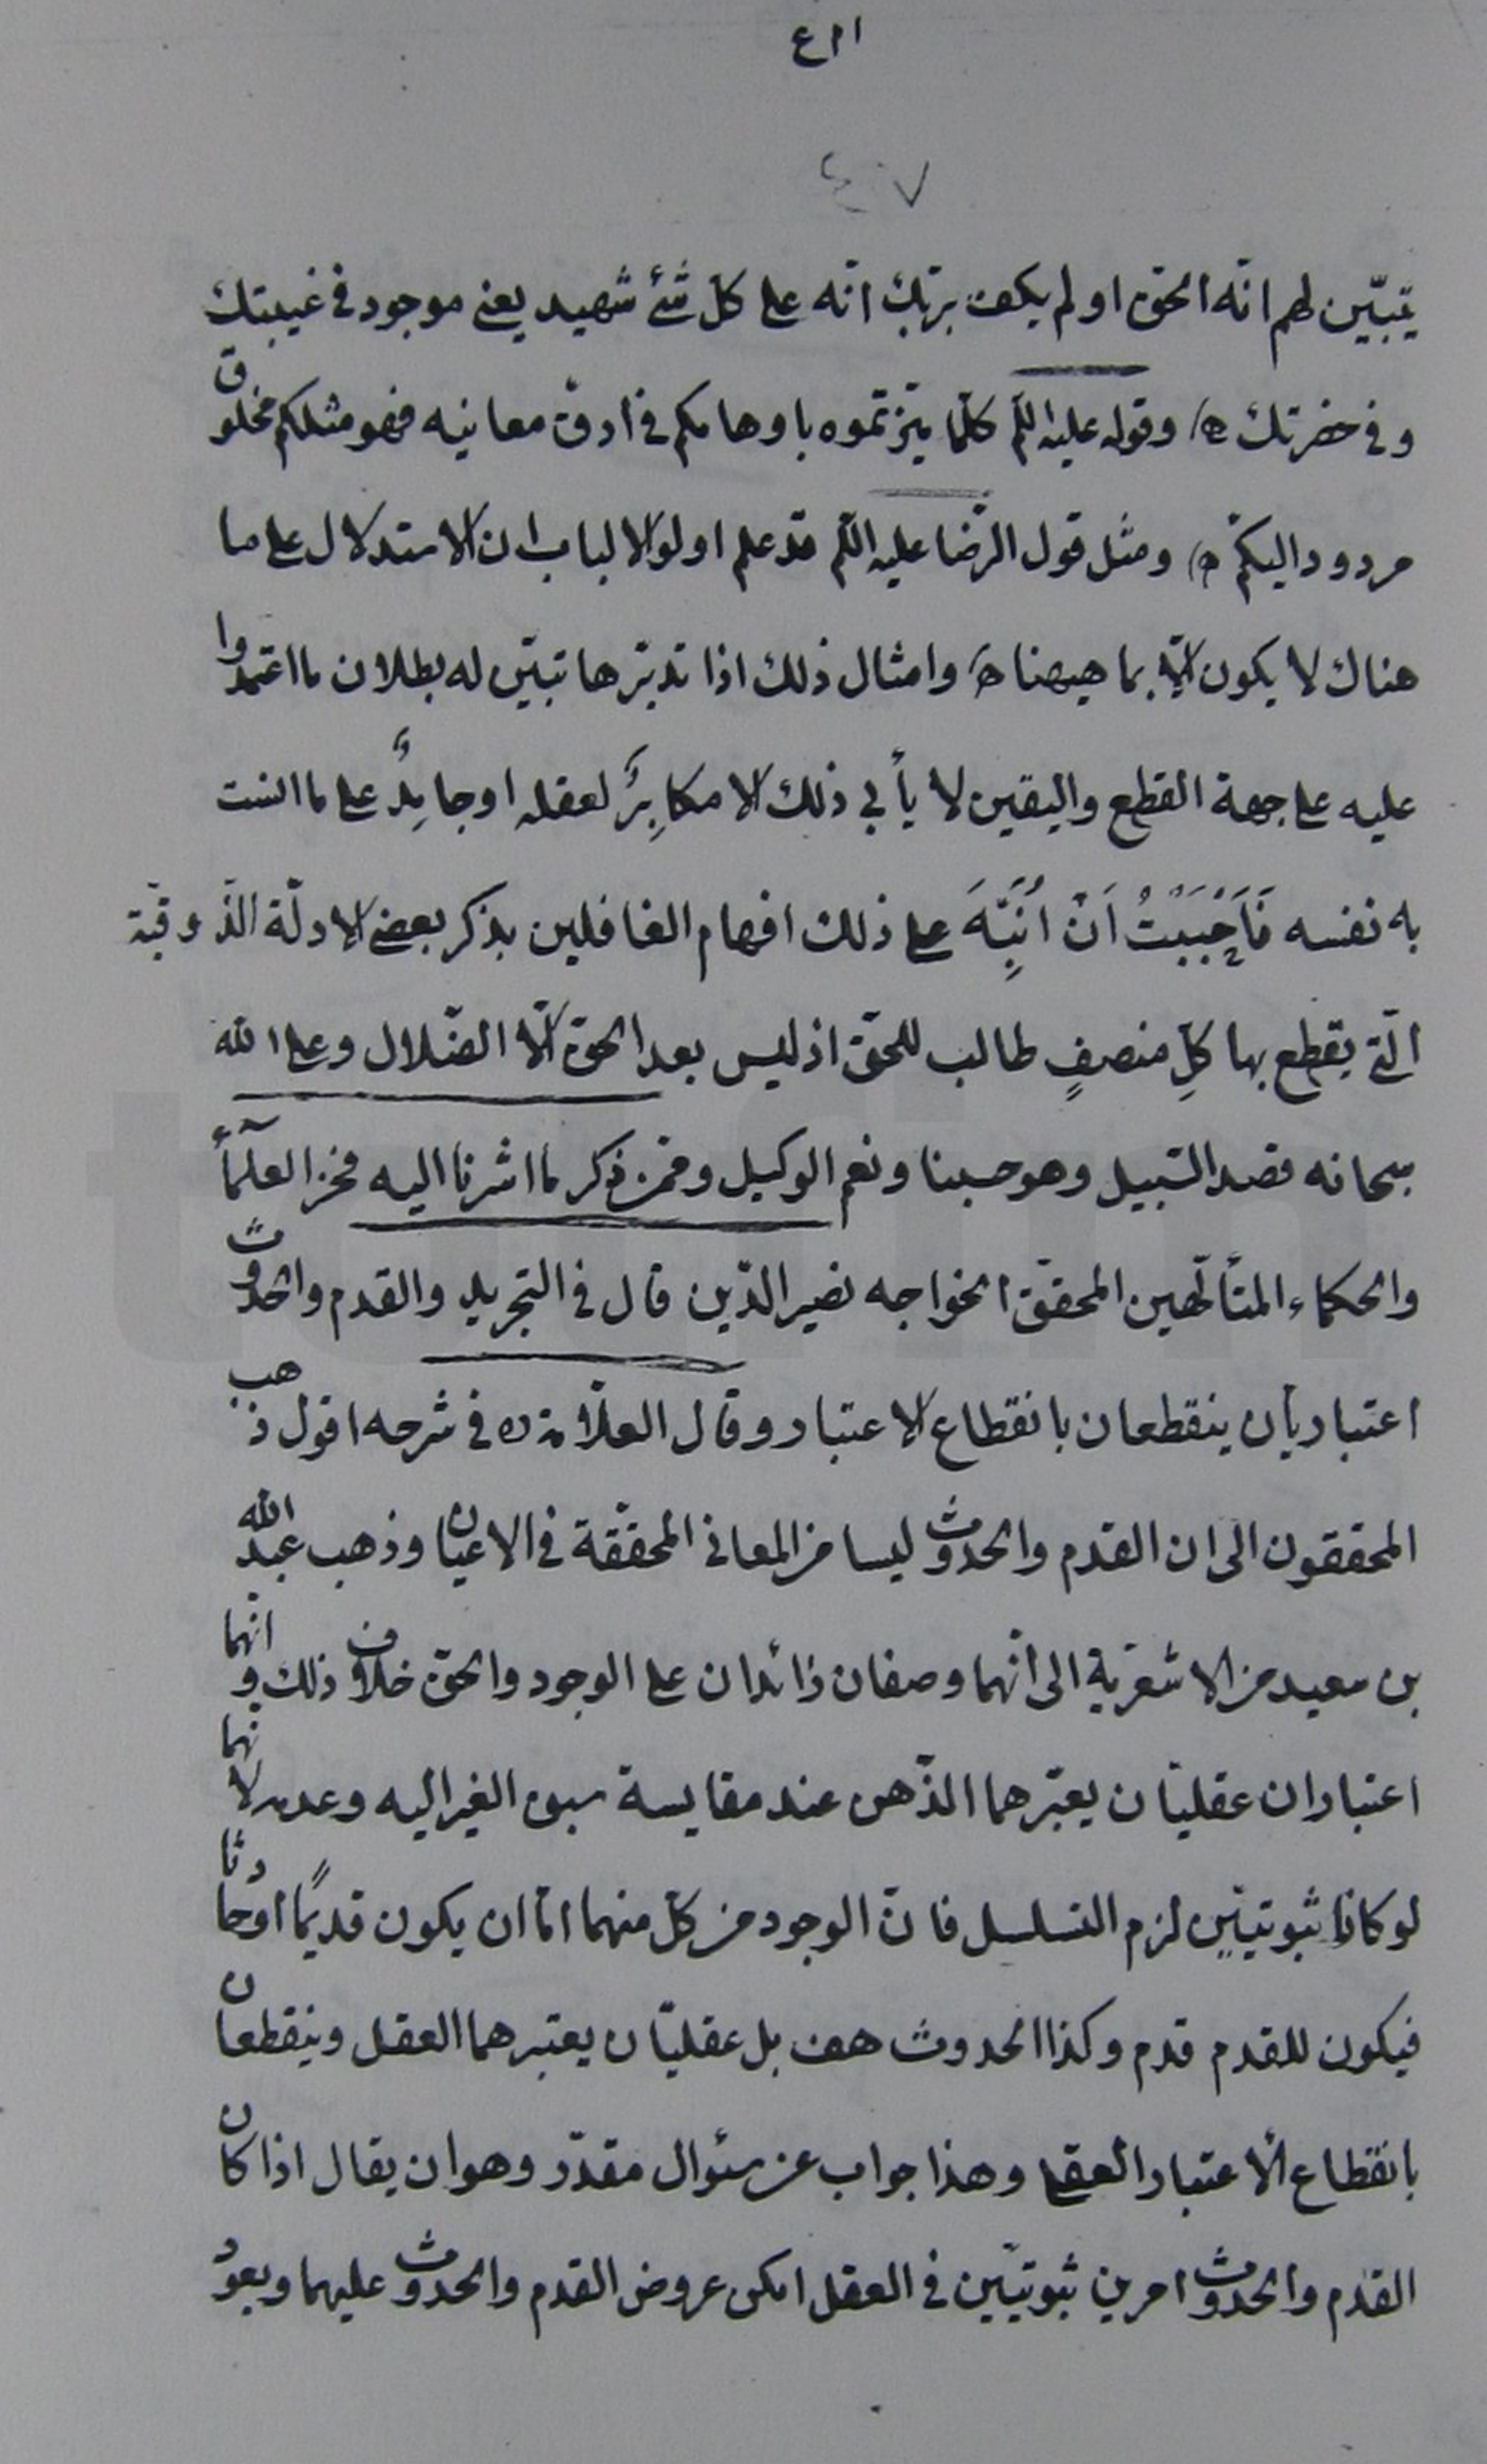 ٤١١
٤٠٧
يتبيّن لهم انّه الحق او لم يكف بربّك انّه على كلّ شئ شهيد يعنى موجود فى غيبتك
و فى حضرتك وقوله عليه السّلم كلّما ميّزتموه باوهامكم فى ادقّ معانيه فهو مثلكم مخلوق
مردود اليكم ومثل قول الرّضا عليه السّلم قد علم اولوا الالباب ان الاستدلال على ما
هناك لا يكون الّا بما هيهنا وامثال ذلك اذا تدبّرها تبيّن له بطلان ما اعتمدوا
عليه على جهة القطع واليقين لا يأبى ذلك الا مكابِرٌ لعقله او جامِدٌ على ما انست
به نفسه فَاَحْبَبْتُ اَنْ اُنَبِّهَ على ذلك افهام الغافلين بذكر بعض الادلّة الذّوقيّة
الّتى يقطع بها كلّ منصفٍ طالب للحقّ اذ ليس بعد الحقّ الّا الضّلال وعلى الله
سبحانه قصد السّبيل وهو حسبنا ونعم الوكيل وممّن ذكر ما اشرنا اليه فخر العلمآء
والحكماء المتألّهين المحقّق الخواجه نصير الدّين قال فى التجريد والقدم والحدوث
اعتباريان ينقطعان بانقطاع الاعتبار وقال العلّامة ره فى شرحه اقول ذهب
المحققون الى ان القدم والحدوث ليسا من المعانى المحقّقة فى الاعيان وذهب عبد الله
بن سعيد من الاشعريّة الى انّهما وصفان زائدان على الوجود والحقّ خلاف ذلك وانّهما
اعتباران عقليّان يعتبرهما الذّهن عند مقايسة سبق الغير اليه وعدمه لانّهما
لو كانا ثبوتيّين لزم التسلسل فانّ الوجود من كلّ منهما امّا ان يكون قديمًا او حادثًا
فيكون للقدم قدم وكذا الحدوث هف بل عقليّان يعتبرهما العقل وينقطعان
بانقطاع الاعتبار العقلى وهذا جواب عن سئوال مقدّر وهو ان يقال اذا كان
القدم والحدوث امرين ثبوتيّين فى العقل امكن عروض القدم والحدوث عليهما ويعود